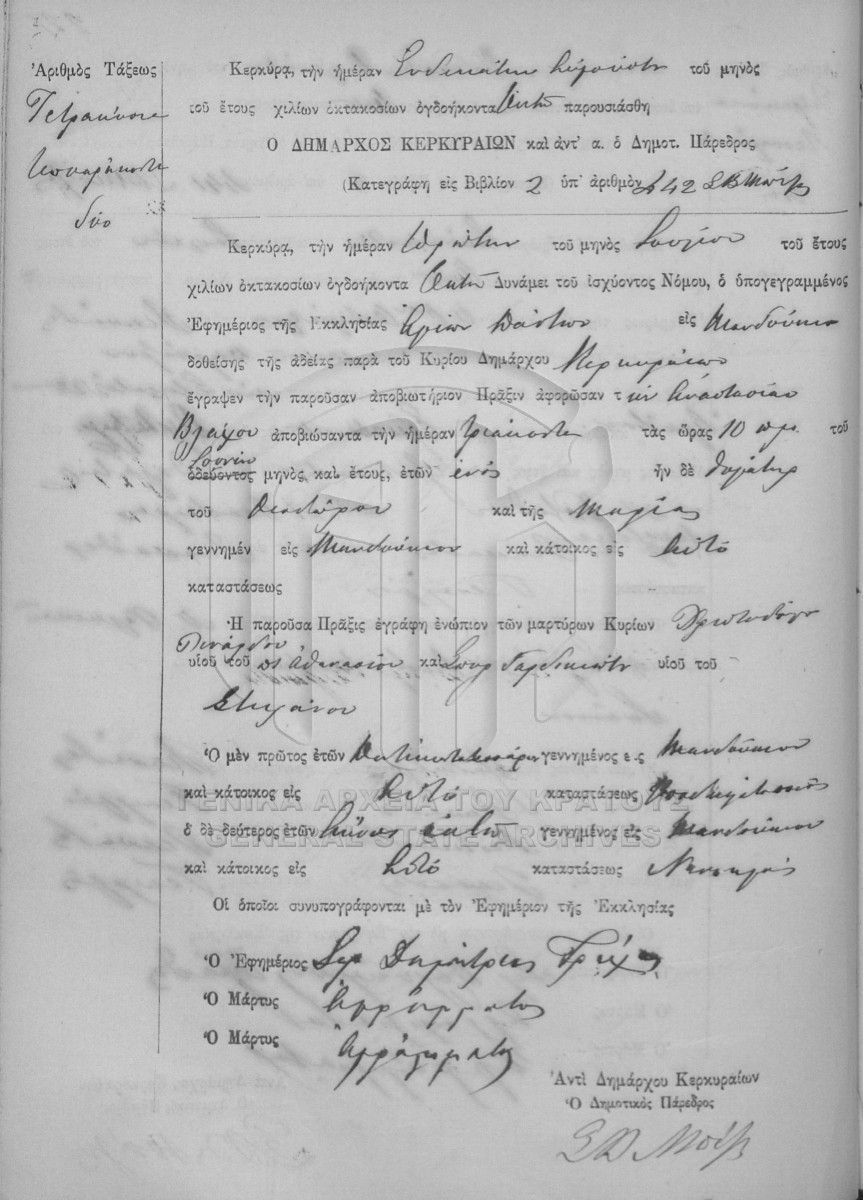 Ἀριθμὸς Τάξεως
Τετρακόσια
τεσσαράκοντα
δύο
Κερκύρᾳ, τὴν ἡμέραν Ἑνδεκάτην Αὐγούστου τοῦ μηνὸς
τοῦ ἔτους χιλίων ὀκτακοσίων ὀγδοήκοντα Ὀκτὼ παρουσιάσθη
Ο ΔΗΜΑΡΧΟΣ ΚΕΡΚΥΡΑΙΩΝ καὶ ἀντ' α. ὁ Δημοτ. Πάρεδρος
(Κατεγράφη εἰς Βιβλίον 2 ὑπ' ἀριθμὸν 442
Κερκύρᾳ, τὴν ἡμέραν Πρώτην τοῦ μηνὸς Ἰουλίου τοῦ ἔτους
χιλίων ὀκτακοσίων ὀγδοήκοντα Ὀκτὼ Δυνάμει τοῦ ἰσχύοντος Νόμου, ὁ ὑπογεγραμμένος
Ἐφημέριος τῆς Ἐκκλησίας Ἁγίων Πάντων εἰς Μανδούκιον
δοθείσης τῆς ἀδείας παρὰ τοῦ Κυρίου Δημάρχου Κερκυραίων
ἔγραψεν τὴν παροῦσαν ἀποβιωτήριον Πρᾶξιν ἀφορῶσαν τὴν Ἀναστασίαν
Βλάχου ἀποβιώσαντα τὴν ἡμέραν τριακοστὴν τὰς ὥρας 10 π.μ. τοῦ
Ἰουνίου
ὁδεύοντος μηνὸς, καὶ ἔτους, ἐτῶν ἑνός ἦν δὲ θυγάτηρ
τοῦ Θεοδώρου καὶ τῆς Μαρίας
γεννημέν εἰς Μανδούκιον καὶ κάτοικος εἰς Αὐτό
καταστάσεως
Ἡ παροῦσα Πρᾶξις ἐγράφη ἐνώπιον τῶν μαρτύρων Κυρίων
υἱοῦ τοῦ Ἀθανασίου καὶ Σπυρ υἱοῦ τοῦ
Στυλιανοῦ
Ὁ μὲν πρῶτος ἐτῶν γεννημένος εἰς Μανδούκιον
καὶ κάτοικος εἰς Αὐτό καταστάσεως
ὁ δὲ δεύτερος ἐτῶν εἴκοσι ὀκτὼ γεννημένος εἰς Μανδούκιον
καὶ κάτοικος εἰς Αὐτό καταστάσεως
Οἱ ὁποῖοι συνυπογράφονται μὲ τὸν Ἐφημέριον τῆς Ἐκκλησίας
Ὁ Ἐφημέριος
Ὁ Μάρτυς Ἀγράμματος
Ὁ Μάρτυς Ἀγράμματος
Ἀντὶ Δημάρχου Κερκυραίων
Ὁ Δημοτικὸς Πάρεδρος
ΓΕΝΙΚΑ ΑΡΧΕΙΑ ΤΟΥ ΚΡΑΤΟΥΣ
GENERAL STATE ARCHIVES